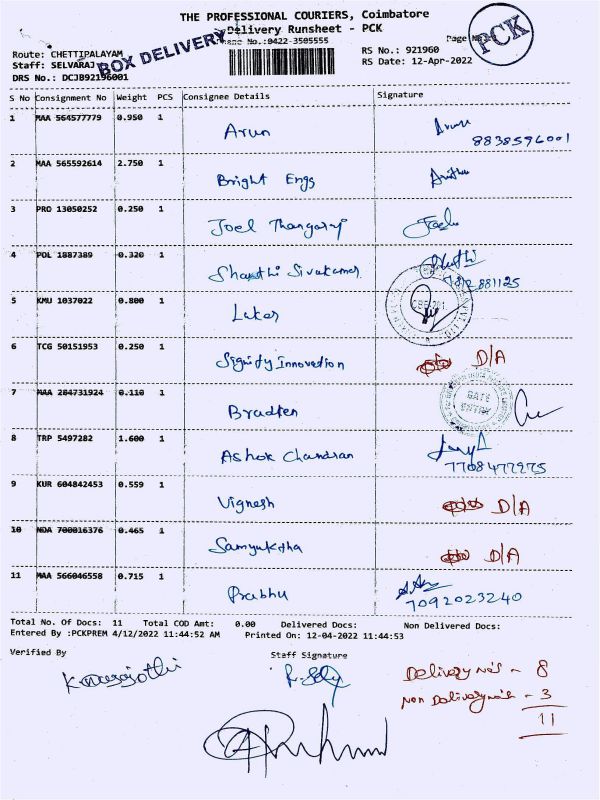 THE PROFESSIONAL COURIERS, Coimbatore
Delivery Runsheet - PCK
Phone No.:0422-3505555
Page No
PCK
BOX DELIVERY
Route: CHETTIPALAYAM
Staff: SELVARAJ
DRS No.: DCJB92196001
RS No.: 921960
RS Date: 12-Apr-2022
S No Consignment No Weight PCS Consignee Details Signature
1 MAA 564577779 0.950 1 Arun Arun
8838596001
2 MAA 565592614 2.750 1 Bright Engs
3 PRO 13050252 0.250 1 Joel Thangaraj Joel
4 POL 1887389 0.320 1 Shanthi Sivakumar
881125
5 KMU 1037022 0.800 1 Lakar
6 TCG 50151953 0.250 1 Signify Innovation D/A
7 MAA 264731924 0.110 1 Bradken
GATE ENTRY
8 TRP 5497282 1.600 1 Ashok Chandran
7708477975
9 KUR 604842453 0.559 1 Vignesh D/A
10 NDA 700816376 0.465 1 Samyuktha D/A
11 MAA 566046558 0.715 1 Prabhu
7092023240
Total No. Of Docs: 11 Total COD Amt: 0.00 Delivered Docs: Non Delivered Docs:
Entered By :PCKPREM 4/12/2022 11:44:52 AM Printed On: 12-04-2022 11:44:53
Verified By Staff Signature
Delivery no's - 8
Non Delivery no's - 3
11